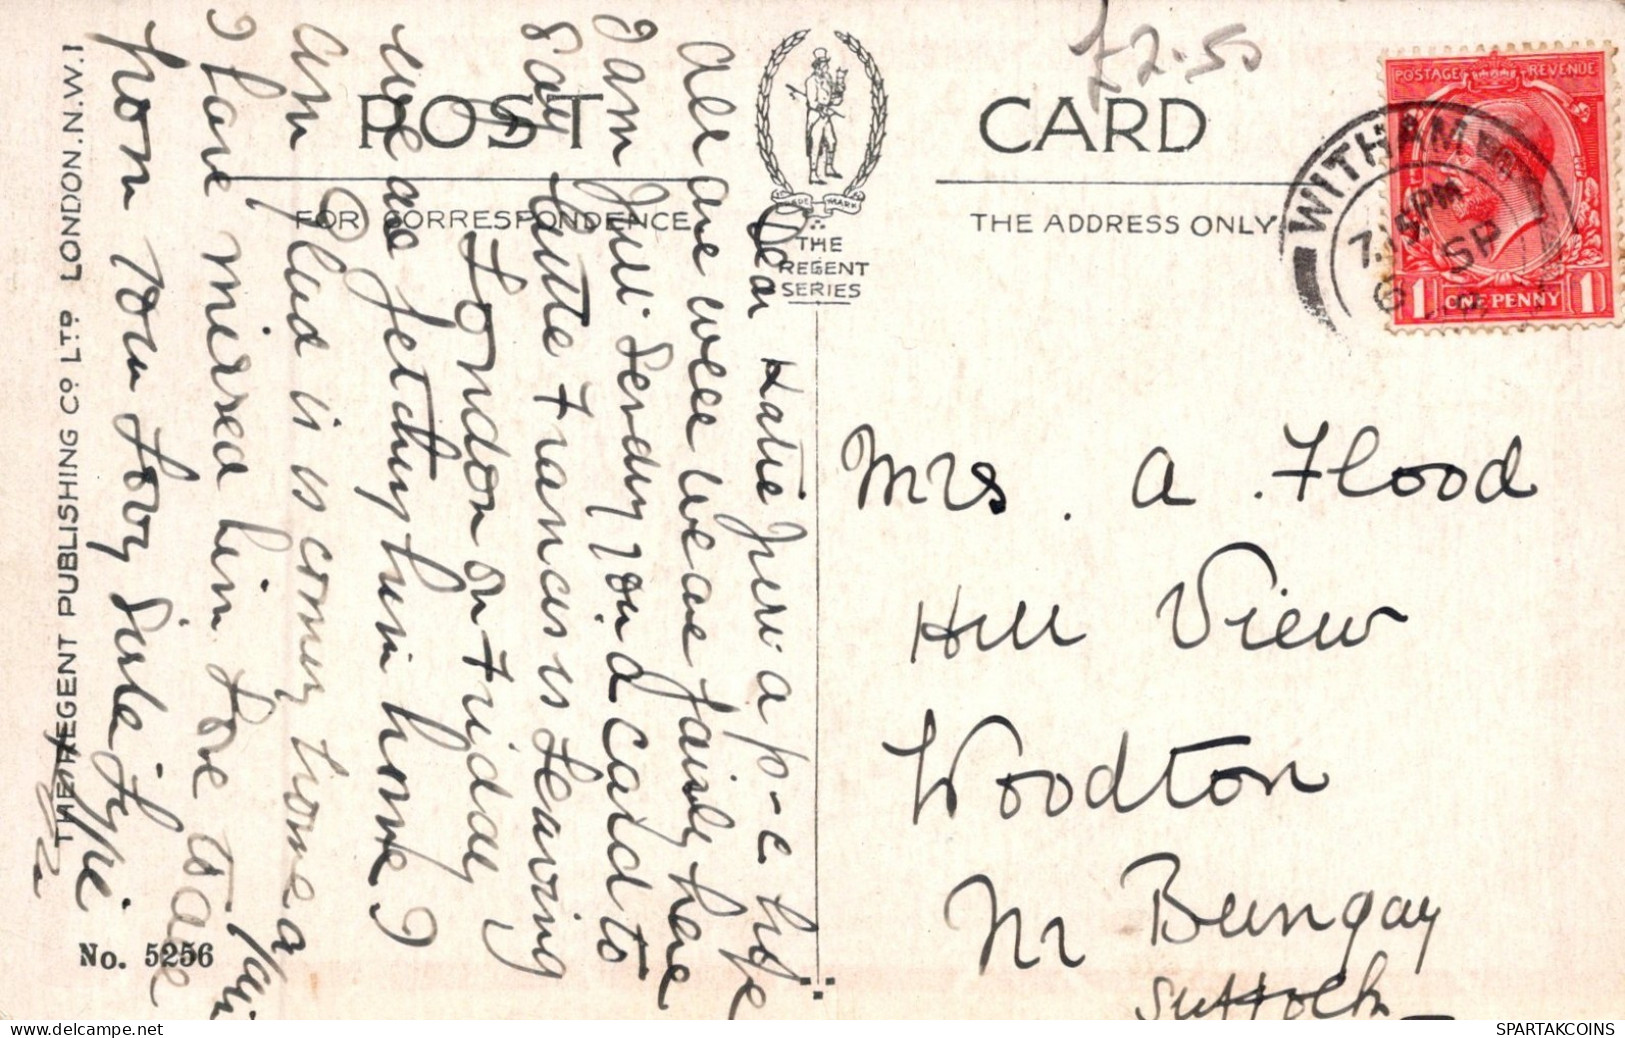 POST CARD
FOR CORRESPONDENCE
THE ADDRESS ONLY
TRADE MARK
THE
REGENT
SERIES
£2.50
POSTAGE REVENUE
1 ONE PENNY 1
WITHAM
7.15 PM
SP
Dear Katie Just a p-c hope
all are well We are fairly here
I am Just Sending you a card to
Say Little Francis is Leaving
London on Friday
we are fetching him home I
am Glad is is coming home
I have missed him Love to all
from your Loving Sister
Mrs. A. Flood
Hill View
Woodton
Nr Bungay
Suffolk
THE REGENT PUBLISHING Co LTD LONDON. N.W.1
No. 5256
SPARTAKCOINS
www.delcampe.net